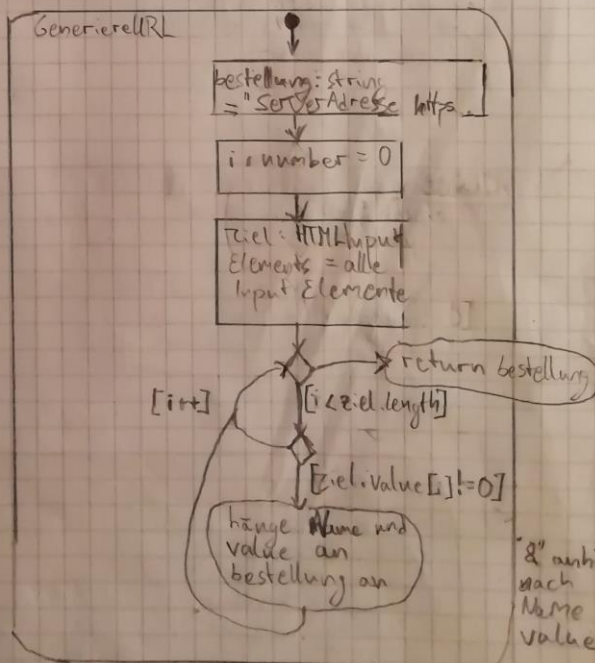 GeneriereURL
bestellung: string
="ServerAdresse https
i : number = 0
Ziel: HTMLInput
Elements = alle
Input Elemente
return bestellung
[i++]
[i<ziel.length]
[ziel.value[i]!=0]
hänge Name und
value an
bestellung an
"&" anh
nach
Name
value